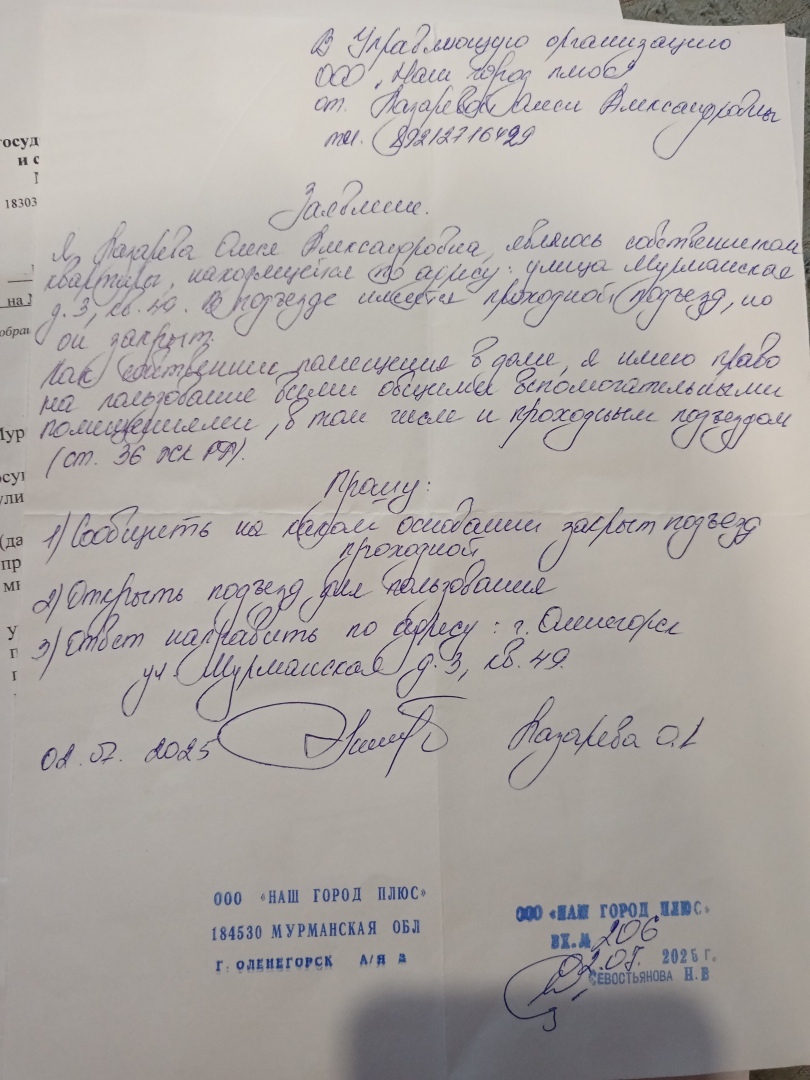 В Управляющую организацию
ООО "Наш город плюс"
от Назаревой Олеси Александровны
тел. 89212716429
Заявление.
Я, Назарева Олеся Александровна, являюсь собственником
квартиры, находящейся по адресу: улица Мурманская
д. 3, кв. 49. В подъезде имеется проходной подъезд, но
он закрыт.
Как собственник помещения в доме, я имею право
на пользование всеми общими вспомогательными
помещениями, в том числе и проходным подъездом
(ст. 36 ЖК РФ).
Прошу:
1) Сообщить на каком основании закрыт подъезд
проходной
2) Открыть подъезд для пользования
3) Ответ направить по адресу: г. Оленегорск
ул. Мурманская д. 3, кв. 49.
02.07.2025 Назарева О.А
ООО «НАШ ГОРОД ПЛЮС»
184530 МУРМАНСКАЯ ОБЛ
Г. ОЛЕНЕГОРСК А/Я 2
ООО «НАШ ГОРОД ПЛЮС»
ВХ.№ 206
02.07. 2025 г.
СЕВОСТЬЯНОВА Н.В
госуд
и с
18303
на
Мур